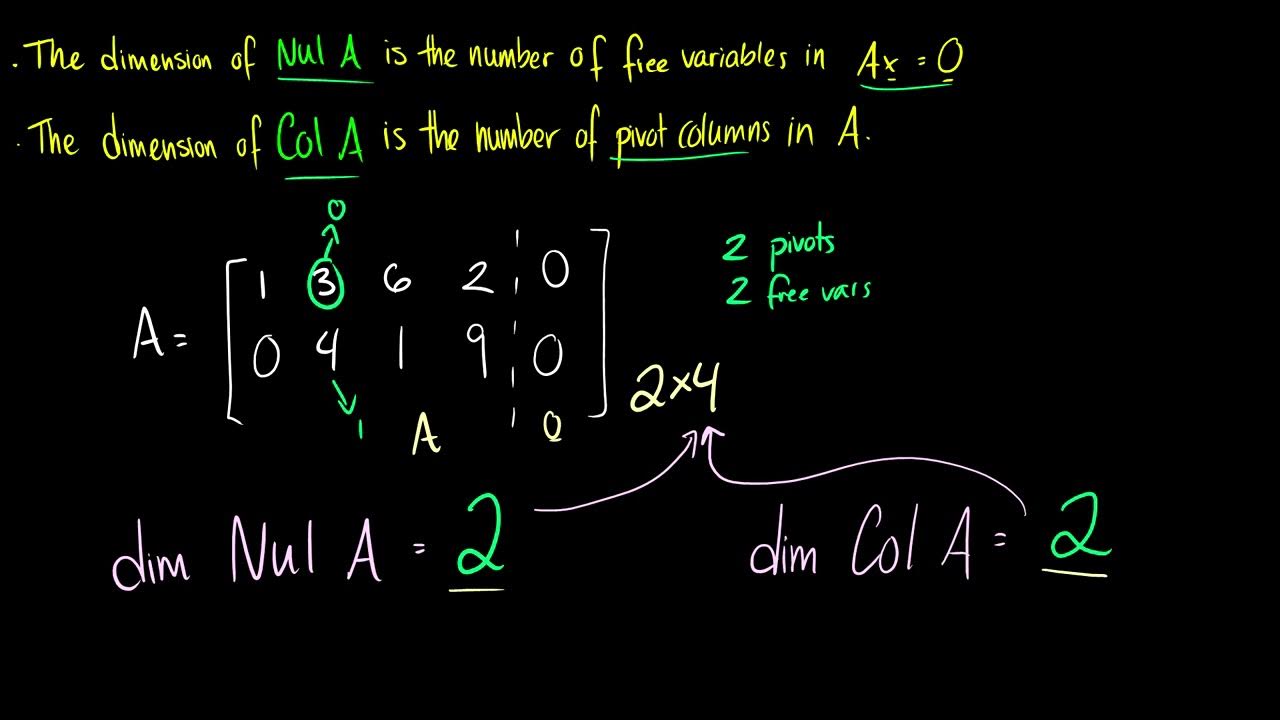 . The dimension of Nul A is the number of free variables in Ax = 0
. The dimension of Col A is the number of pivot columns in A.
0
2 pivots
2 free vars
A = [ 1 3 6 2 ¦ 0 ]
0 4 1 9 ¦ 0
2×4
1 A 0
dim Nul A = 2 dim Col A = 2